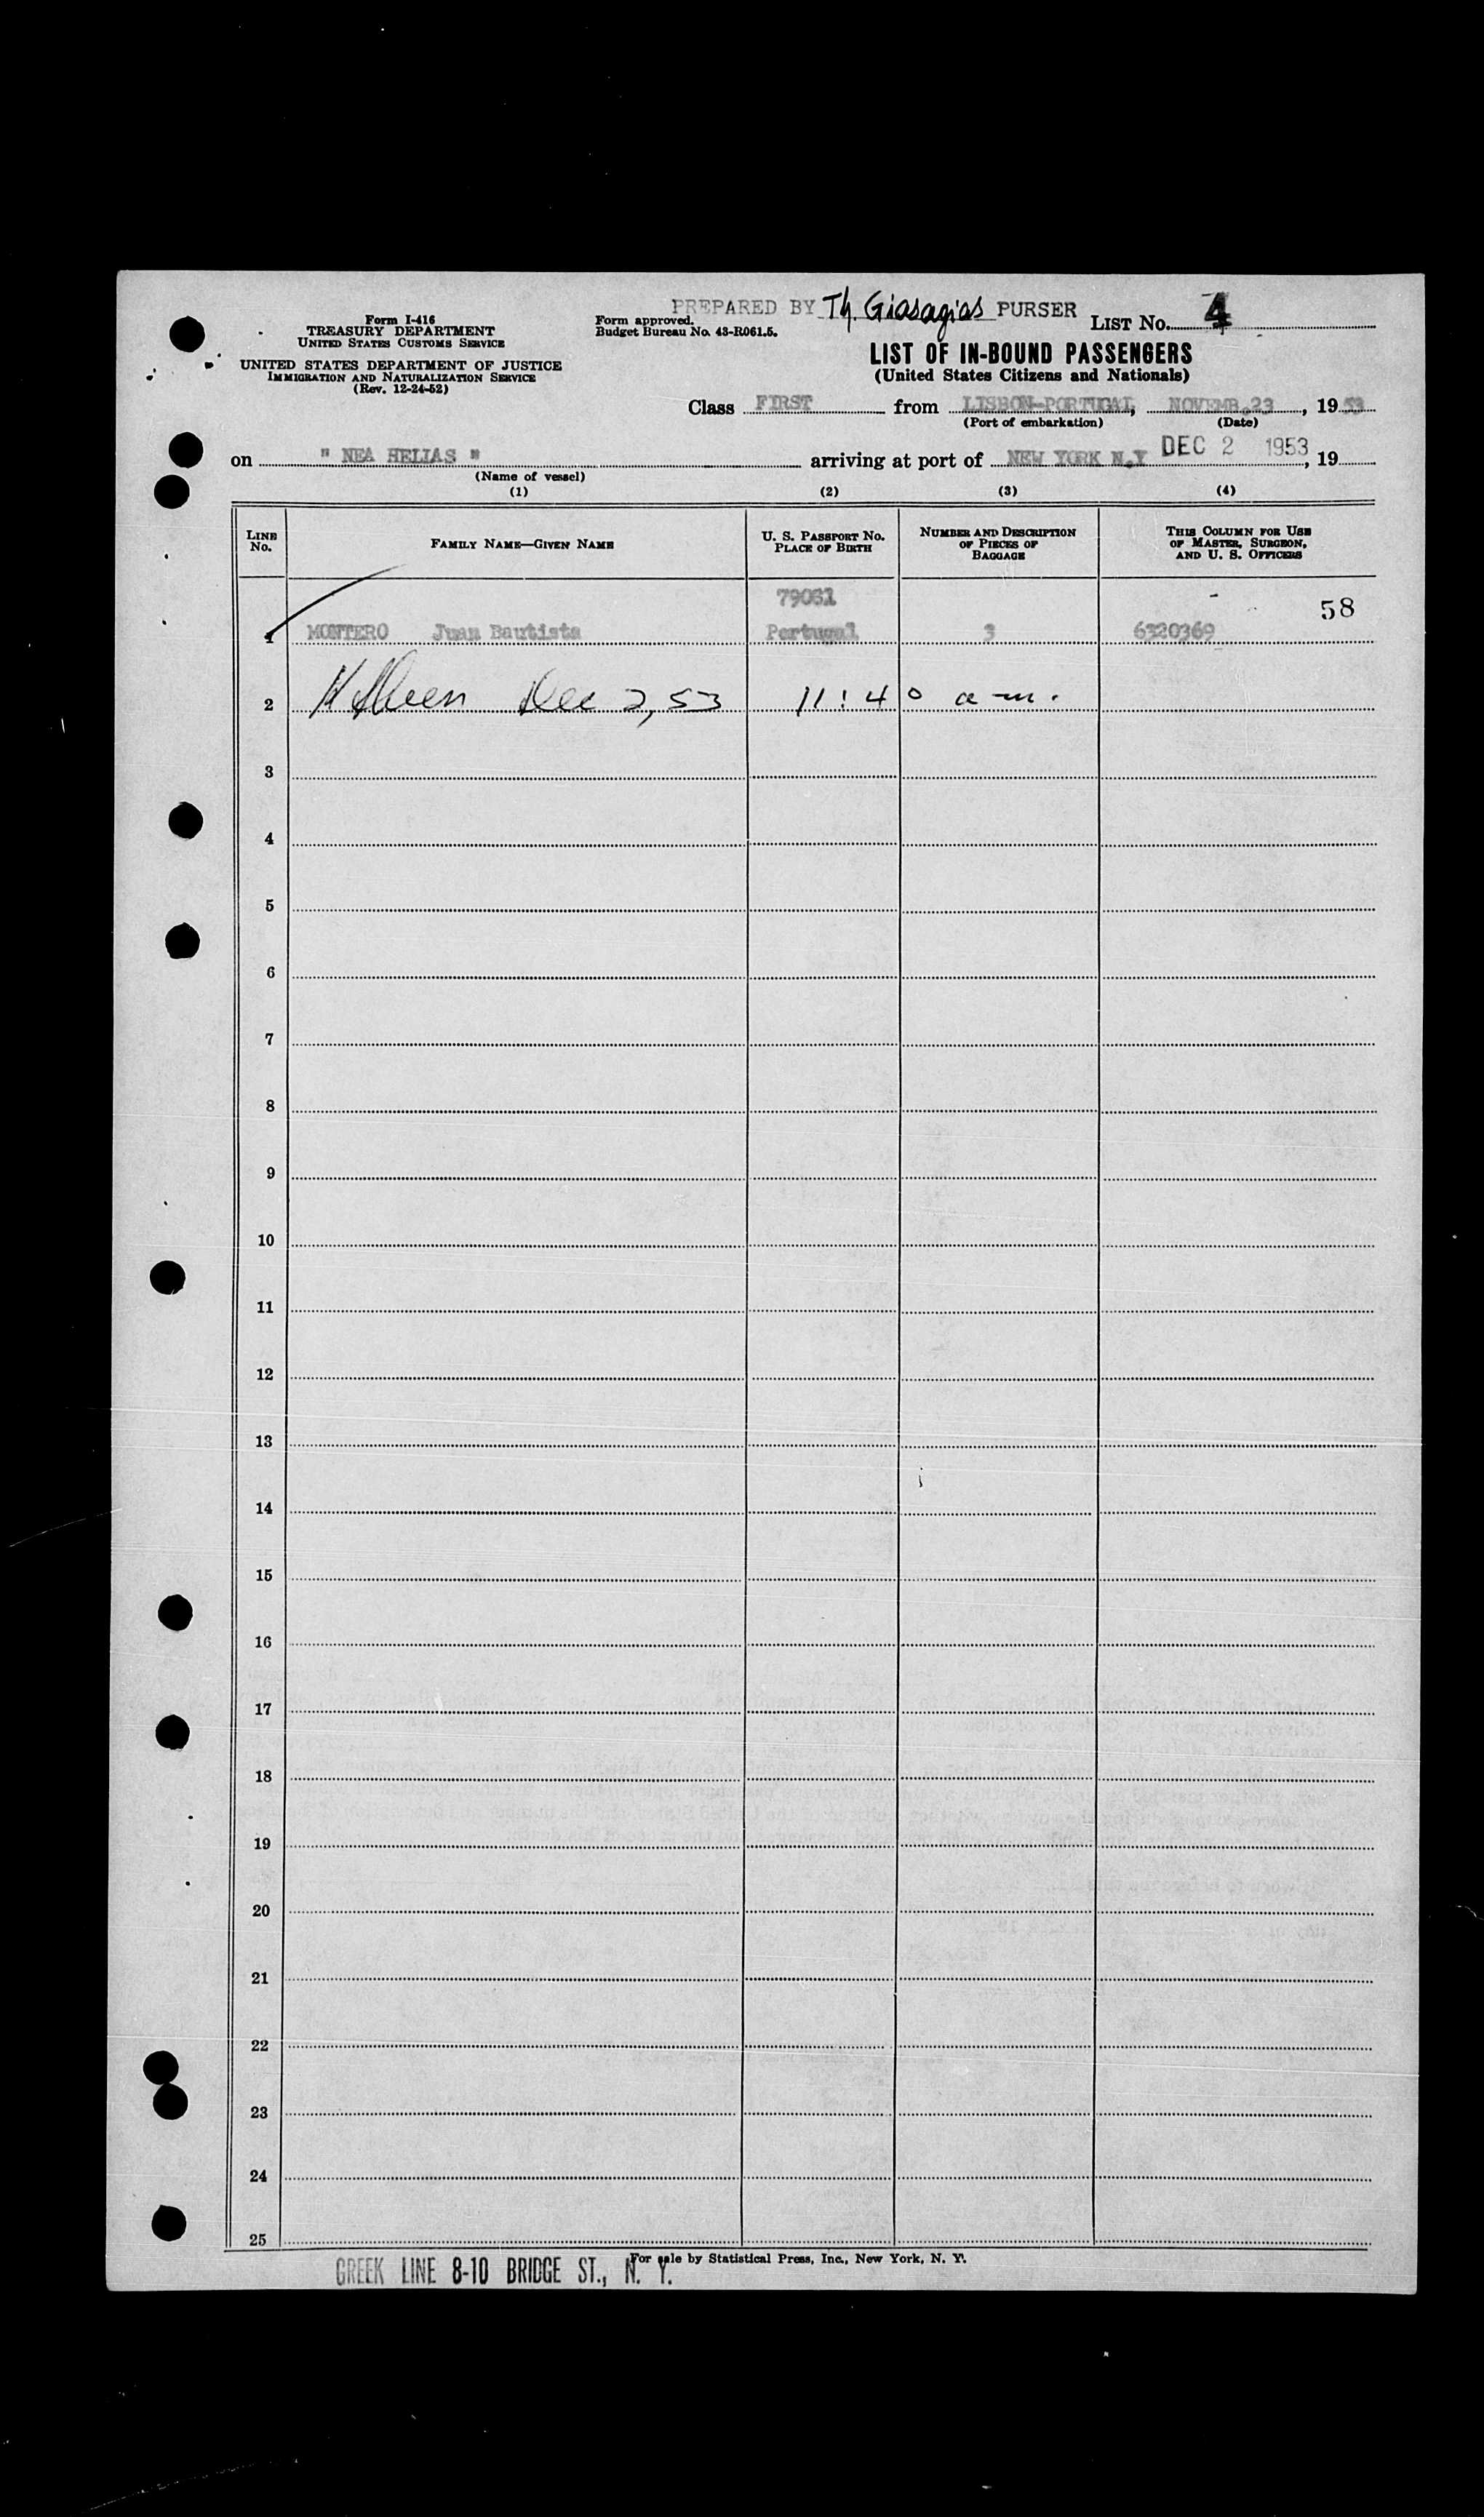 PREPARED BY Th. Giasagias PURSER
Form I-416
TREASURY DEPARTMENT
UNITED STATES CUSTOMS SERVICE
UNITED STATES DEPARTMENT OF JUSTICE
IMMIGRATION AND NATURALIZATION SERVICE
(Rev. 12-24-52)
Form approved.
Budget Bureau No. 43-R061.5.
LIST No. 4
LIST OF IN-BOUND PASSENGERS
(United States Citizens and Nationals)
Class FIRST from LISBON-PORTUGAL, NOVEMB.23, 1953
(Port of embarkation) (Date)
on " NEA HELIAS " arriving at port of NEW YORK N.Y DEC 2 1953, 19
(Name of vessel)
(1) (2) (3) (4)
LINE No. FAMILY NAME—GIVEN NAME U. S. PASSPORT No. PLACE OF BIRTH NUMBER AND DESCRIPTION OF PIECES OF BAGGAGE THIS COLUMN FOR USE OF MASTER, SURGEON, AND U. S. OFFICERS
79061 58
1 MONTERO Juan Bautista Portugal 3 6320369
2 Dec 2, 53 11:40 a-m.
3
4
5
6
7
8
9
10
11
12
13
14
15
16
17
18
19
20
21
22
23
24
25
For sale by Statistical Press, Inc., New York, N. Y.
GREEK LINE 8-10 BRIDGE ST., N. Y.